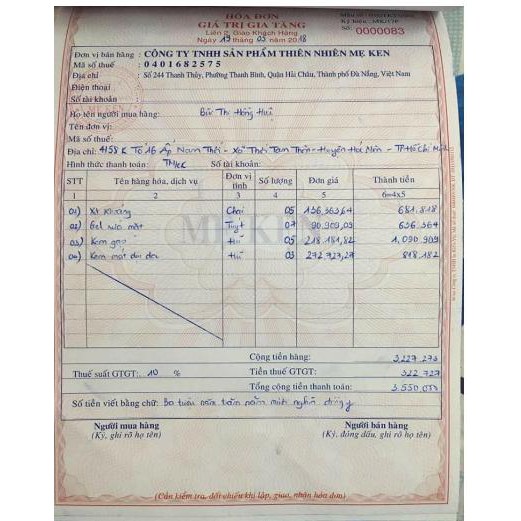 HÓA ĐƠN
GIÁ TRỊ GIA TĂNG
Liên 2: Giao Khách Hàng
Ngày 15 tháng 03 năm 2018
Số: 0000083
Đơn vị bán hàng : CÔNG TY TNHH SẢN PHẨM THIÊN NHIÊN MẸ KEN
Mã số thuế : 0401682575
Địa chỉ : Số 244 Thanh Thủy, Phường Thanh Bình, Quận Hải Châu, Thành phố Đà Nẵng, Việt Nam
Điện thoại :
Số tài khoản :
Họ tên người mua hàng: Bùi Thị Hồng Huệ
Tên đơn vị:
Mã số thuế:
Địa chỉ: 4158K Tổ 16 Ấp Nam Thới - Xã Thới Tam Thôn - Huyện Hóc Môn - TP Hồ Chí Minh
Hình thức thanh toán: TM/CK Số tài khoản:
STT Tên hàng hóa, dịch vụ Đơn vị tính Số lượng Đơn giá Thành tiền
1 2 3 4 5 6=4x5
01) Xịt khoáng Chai 05 136.363,64 681.818
02) Gel rửa mặt Tuýp 07 90.909,09 636.364
03) Kem Hũ 05 218.181,82 1,090,909
04) Kem mặt Hũ 03 272.727,27 818.182
MẸ KEN
Cộng tiền hàng: 3,227,273
Thuế suất GTGT: 10 % Tiền thuế GTGT: 322.727
Tổng cộng tiền thanh toán: 3.550.000
Số tiền viết bằng chữ: Ba triệu năm trăm năm mươi nghìn đồng
Người mua hàng Người bán hàng
(Ký, ghi rõ họ tên) (Ký, đóng dấu, ghi rõ họ tên)
(Cần kiểm tra, đối chiếu khi lập, giao, nhận hóa đơn)